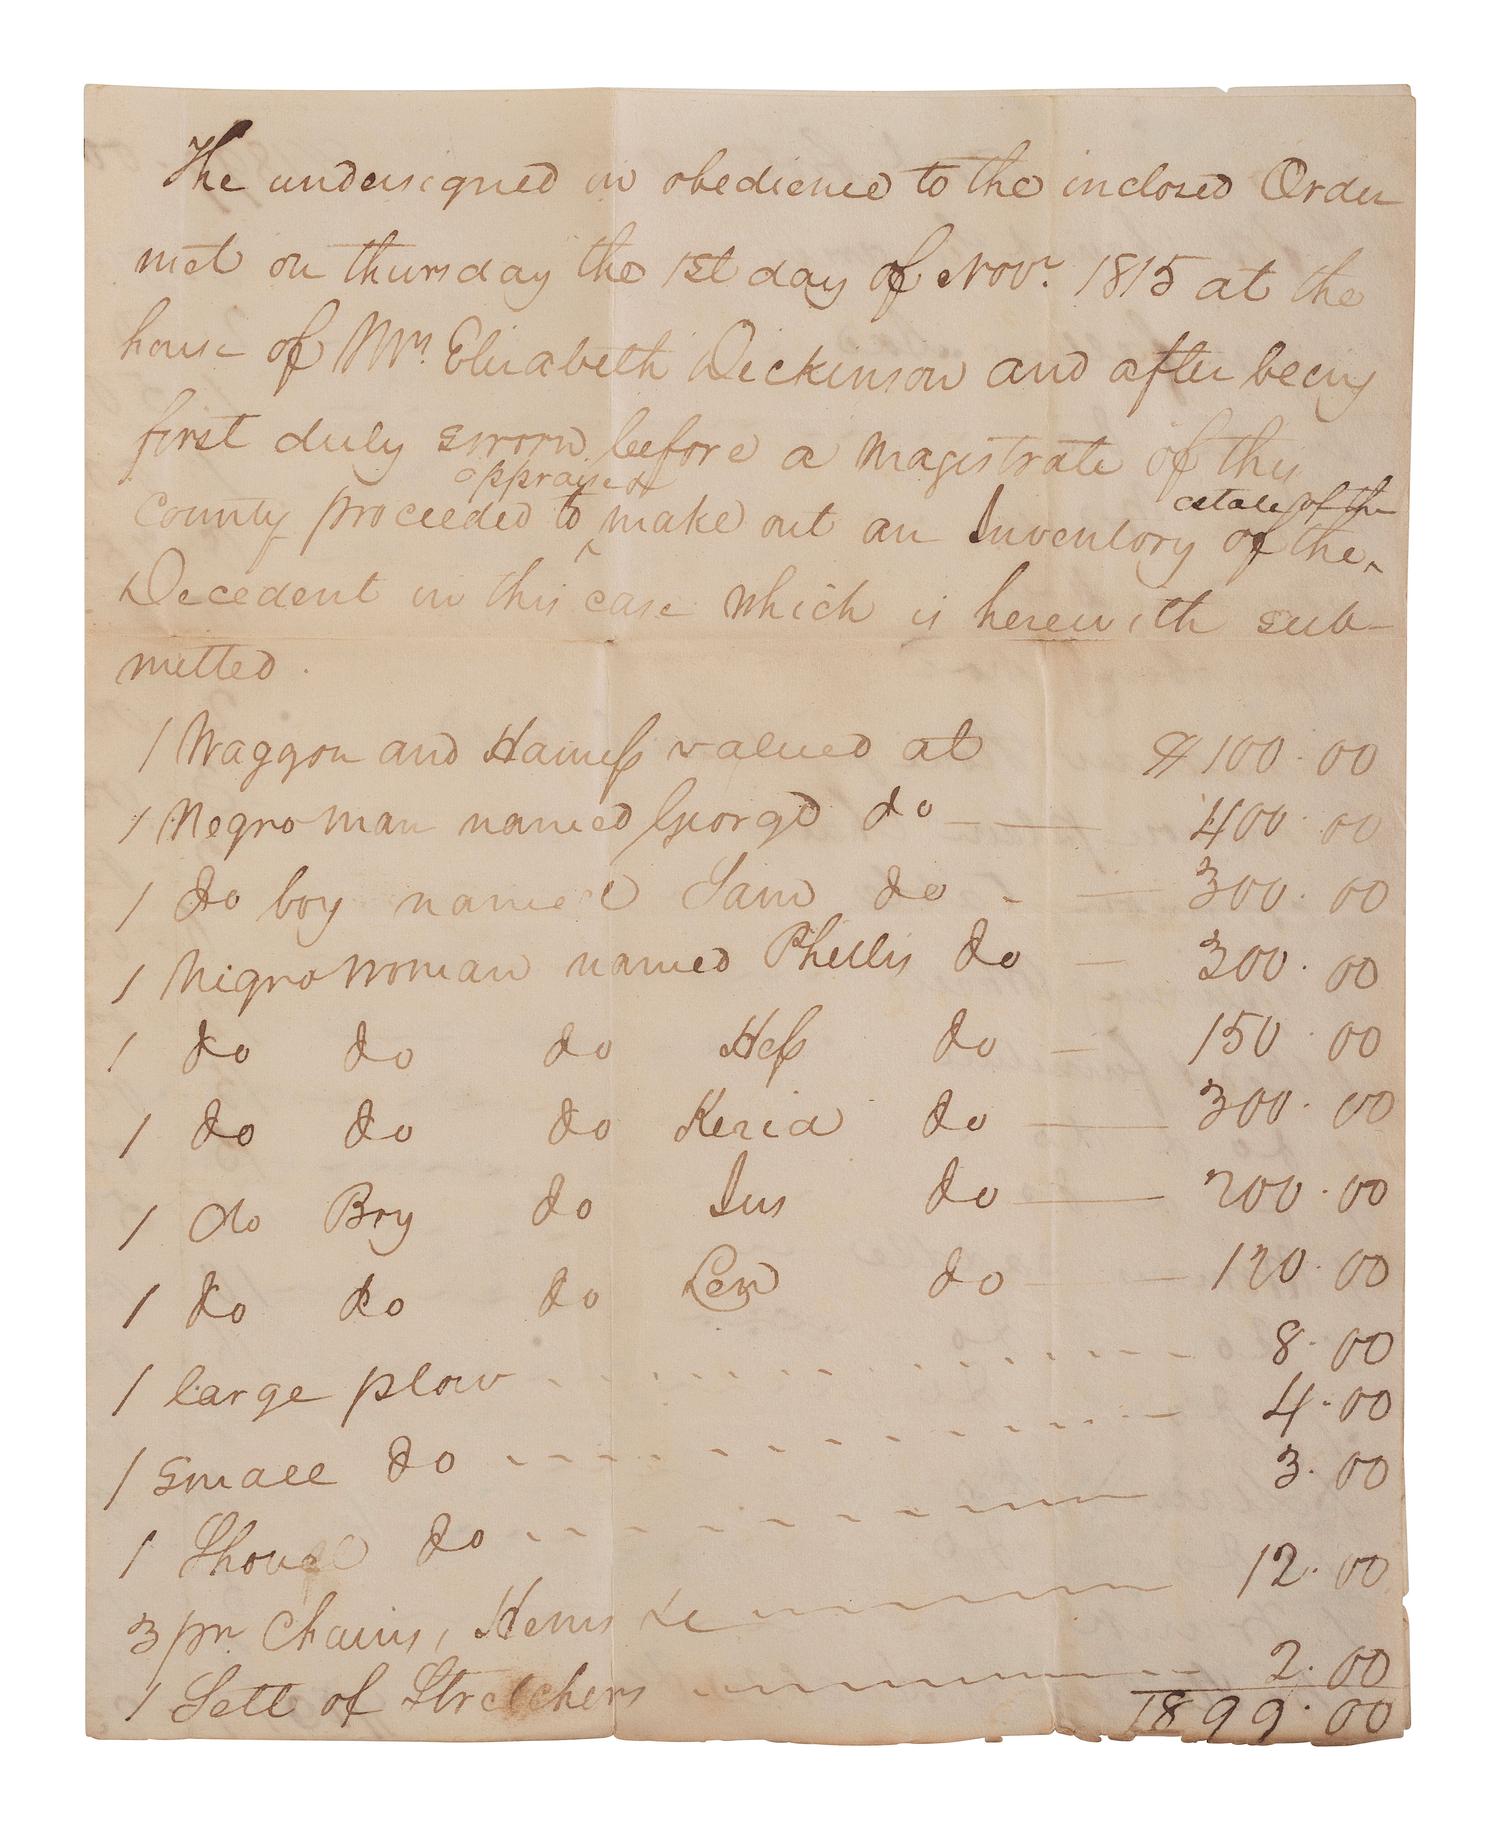 The undersigned in obedience to the inclosed Order
met on thursday the 1st day of Novr. 1815 at the
house of Mrs Elizabeth Dickinson and after being
first duly sworn before a Magistrate of this
appraise &
estate of the
County proceeded to ^ make out an Inventory of the ^
Decedent in this case which is herewith sub-
mitted.
1 Waggon and Harness valued at $100.00
1 Negro man named George do 400.00
1 do boy named Sam do 300.00
1 Negro woman named Phillis do 300.00
1 do do do Hess do 150.00
1 do do do Kezia do 300.00
1 do Boy do do 200.00
1 do do do Len do 120.00
1 large plow 8.00
1 small do 4.00
1 Shovel do 3.00
3 pr. Chains, Hems &c 12.00
1 Sett of Stretchers 2.00
1899.00